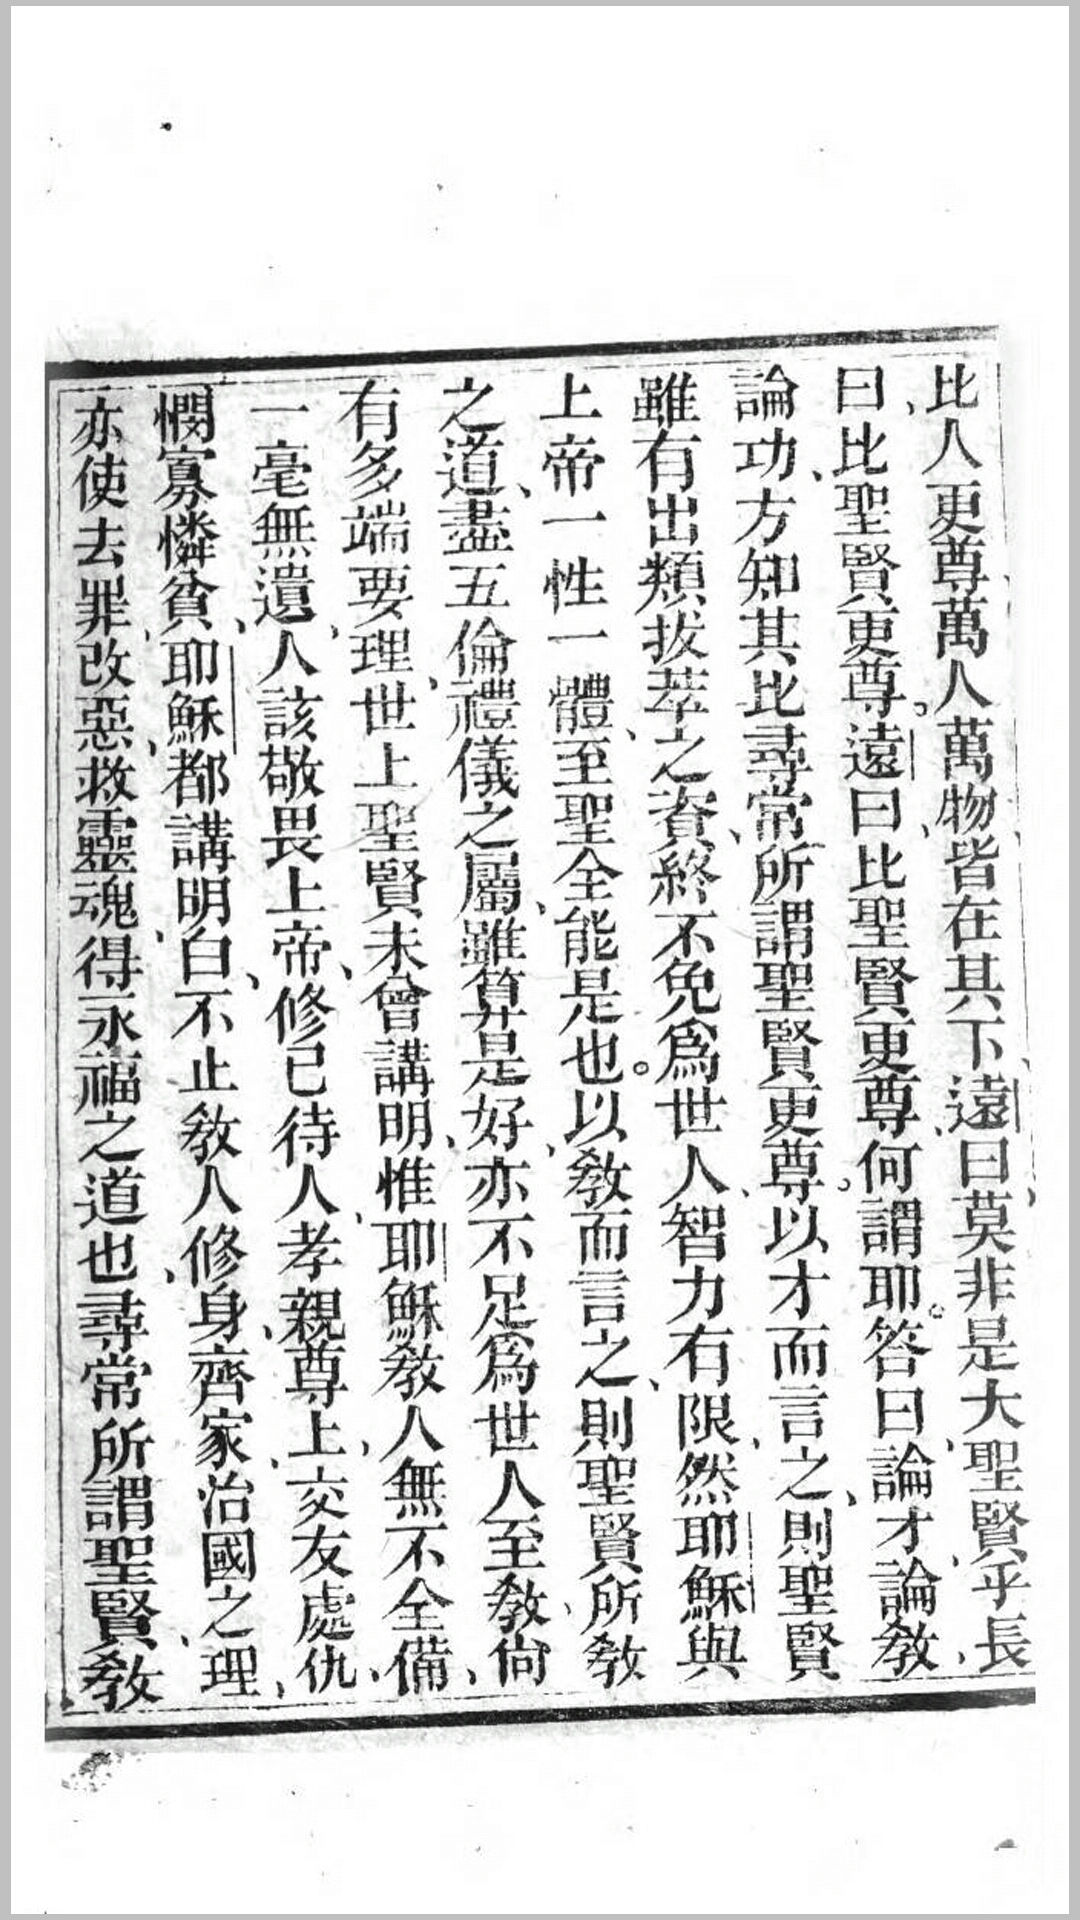 比人更尊萬人萬物皆在其下、遠曰莫非是大聖賢乎、長
曰、比聖賢更尊。遠曰、比聖賢更尊、何謂耶。答曰、論才、論敎、
論功、方知其比尋常所謂聖賢更尊。以才而言之、則聖賢
雖有出類拔萃之資、終不免爲世人、智力有限、然耶穌與
上帝一性一體、至聖全能是也。以敎而言之、則聖賢所敎
之道、盡五倫禮儀之屬、雖算是好、亦不足爲世人至敎、尙
有多端要理、世上聖賢未曾講明、惟耶穌敎人無不全備、
一毫無遺、人該敬畏上帝、修己待人、孝親尊上、交友處仇、
憫寡憐貧、耶穌都講明白、不止敎人修身、齊家、治國之理、
亦使去罪、改惡、救靈魂、得永福之道也、尋常所謂聖賢、敎